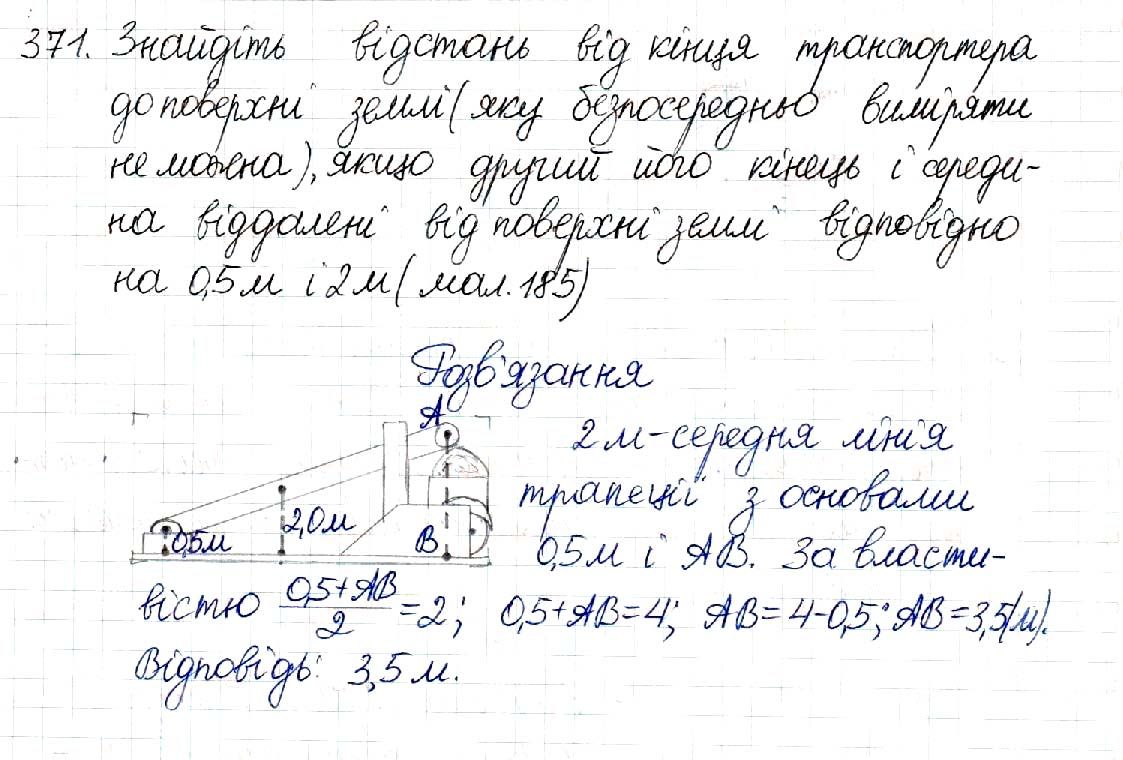 371. Знайдіть відстань від кінця транспортера
до поверхні землі (яку безпосередньо виміряти
не можна), якщо другий його кінець і середи-
на віддалені від поверхні землі відповідно
на 0,5 м і 2 м (мал. 185)
Розв'язання
A
2 м - середня лінія
трапеції з основами
0,5м 2,0м B
0,5 м і AB. За власти-
вістю (0,5+AB)/2 = 2; 0,5+AB=4; AB=4-0,5; AB=3,5(м).
Відповідь: 3,5 м.